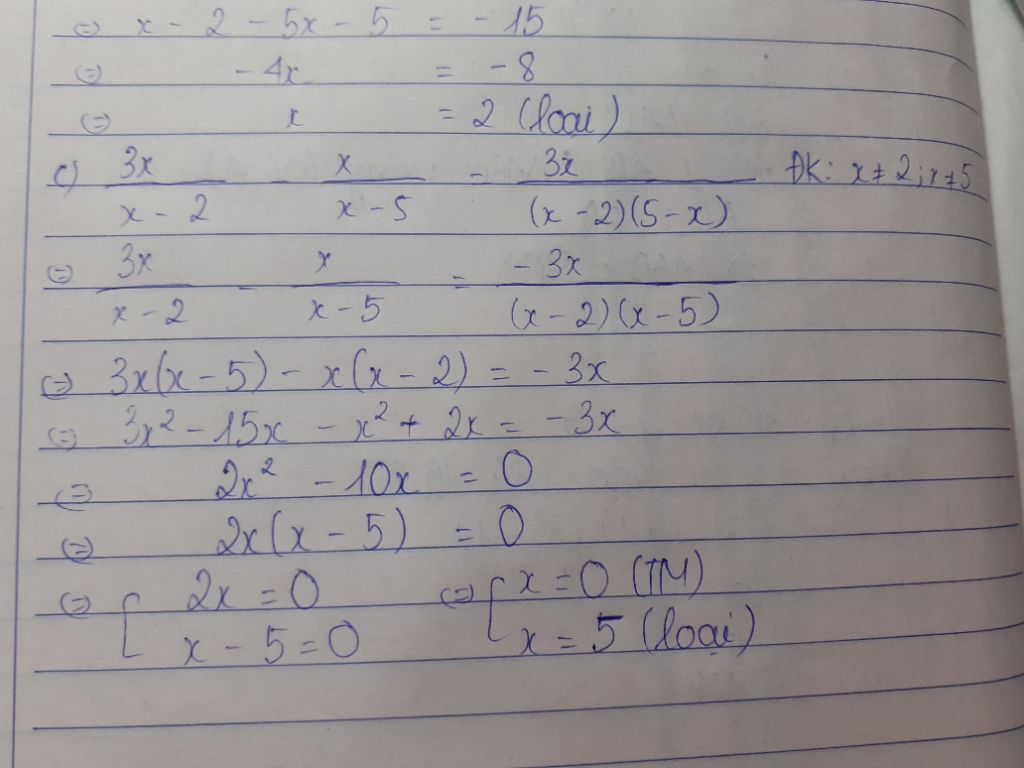 ⇔ x - 2 - 5x - 5 = - 15
⇔ - 4x = - 8
⇔ x = 2 (loại)
c) 3x/(x - 2) - x/(x - 5) = 3x/((x - 2)(5 - x)) ĐK: x ≠ 2; x ≠ 5
⇔ 3x/(x - 2) - x/(x - 5) = - 3x/((x - 2)(x - 5))
⇔ 3x(x - 5) - x(x - 2) = - 3x
⇔ 3x² - 15x - x² + 2x = - 3x
⇔ 2x² - 10x = 0
⇔ 2x(x - 5) = 0
⇔ [ 2x = 0 ⇔ [ x = 0 (TM)
x - 5 = 0 x = 5 (loại)